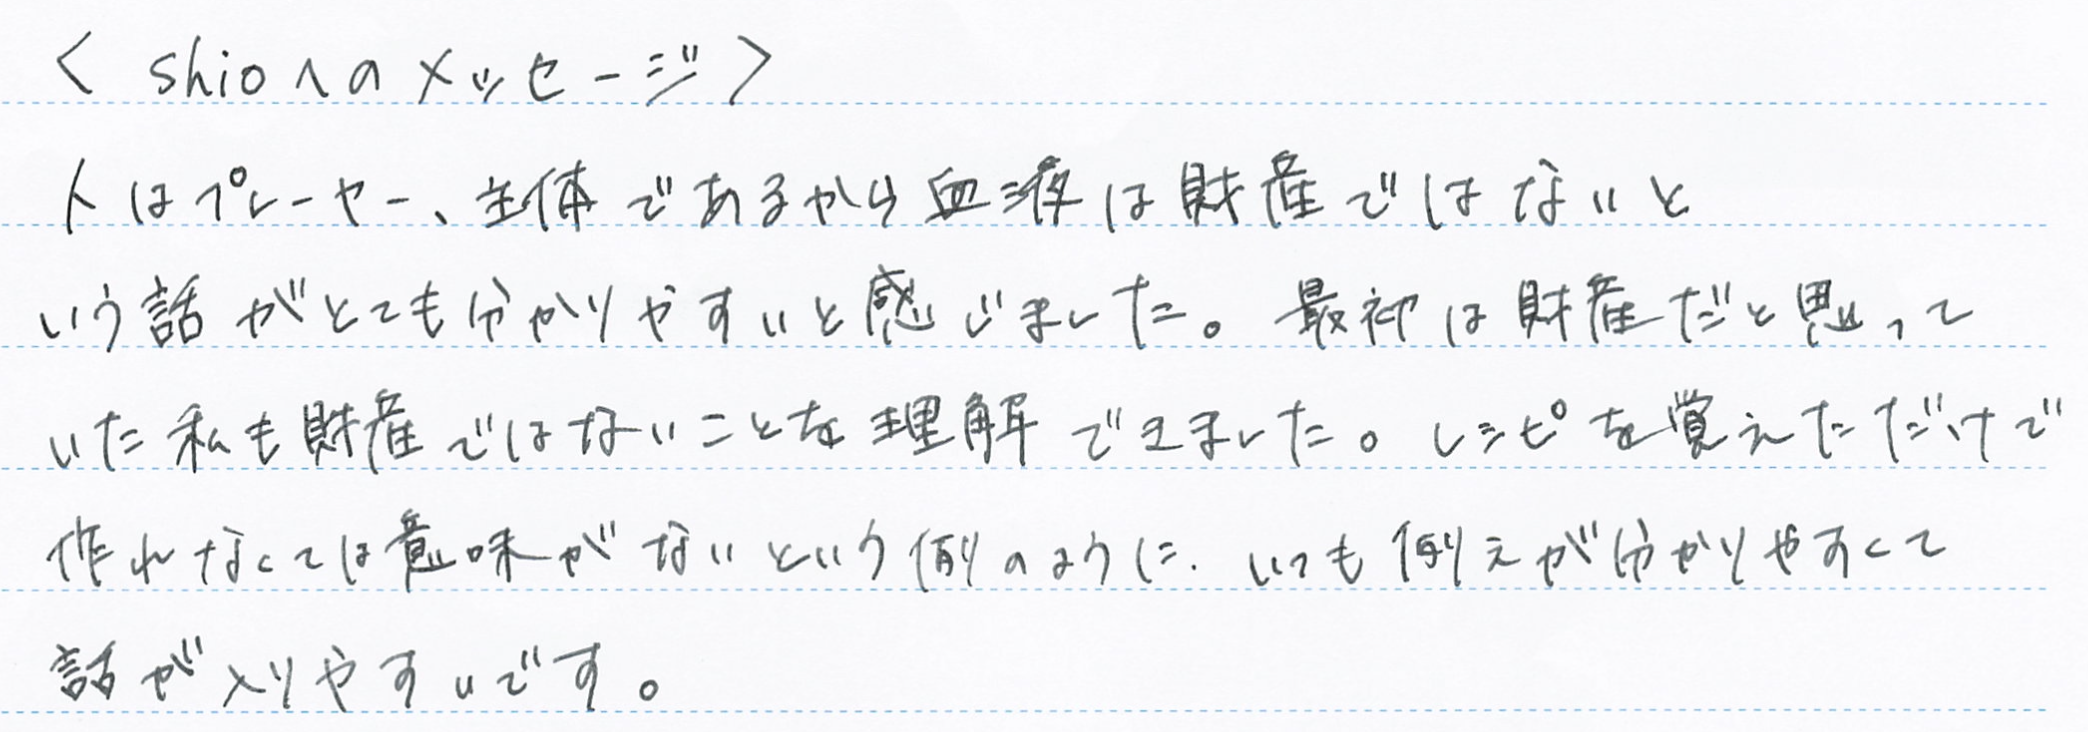 < shioへのメッセージ >
人はプレーヤー、主体であるから血液は財産ではないと
いう話がとても分かりやすいと感じました。最初は財産だと思って
いた私も財産ではないことを理解できました。レシピを覚えただけで
作れなくては意味がないという例のように、いつも例えが分かりやすくて
話が入りやすいです。